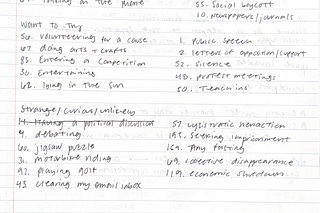 talking on the phone
55. Social boycott
10. newspapers/journals
Want to Try
56. volunteering for a cause
67. doing arts + crafts
83. Entering a competition
30. Entertaining
68. lying in the sun
1. Public speech
2. letters of opposition/support
52. Silence
48. protest meetings
50. Teach ins
Strange/curious/unlikely
14. Having a political discussion
4. debating
60. jigsaw puzzle
31. motorbike riding
92. playing golf
43. clearing my email inbox
57. Lysistratic nonaction
195. Seeking imprisonment
159. Any fasting
69. collective disappearance
119. economic shutdown